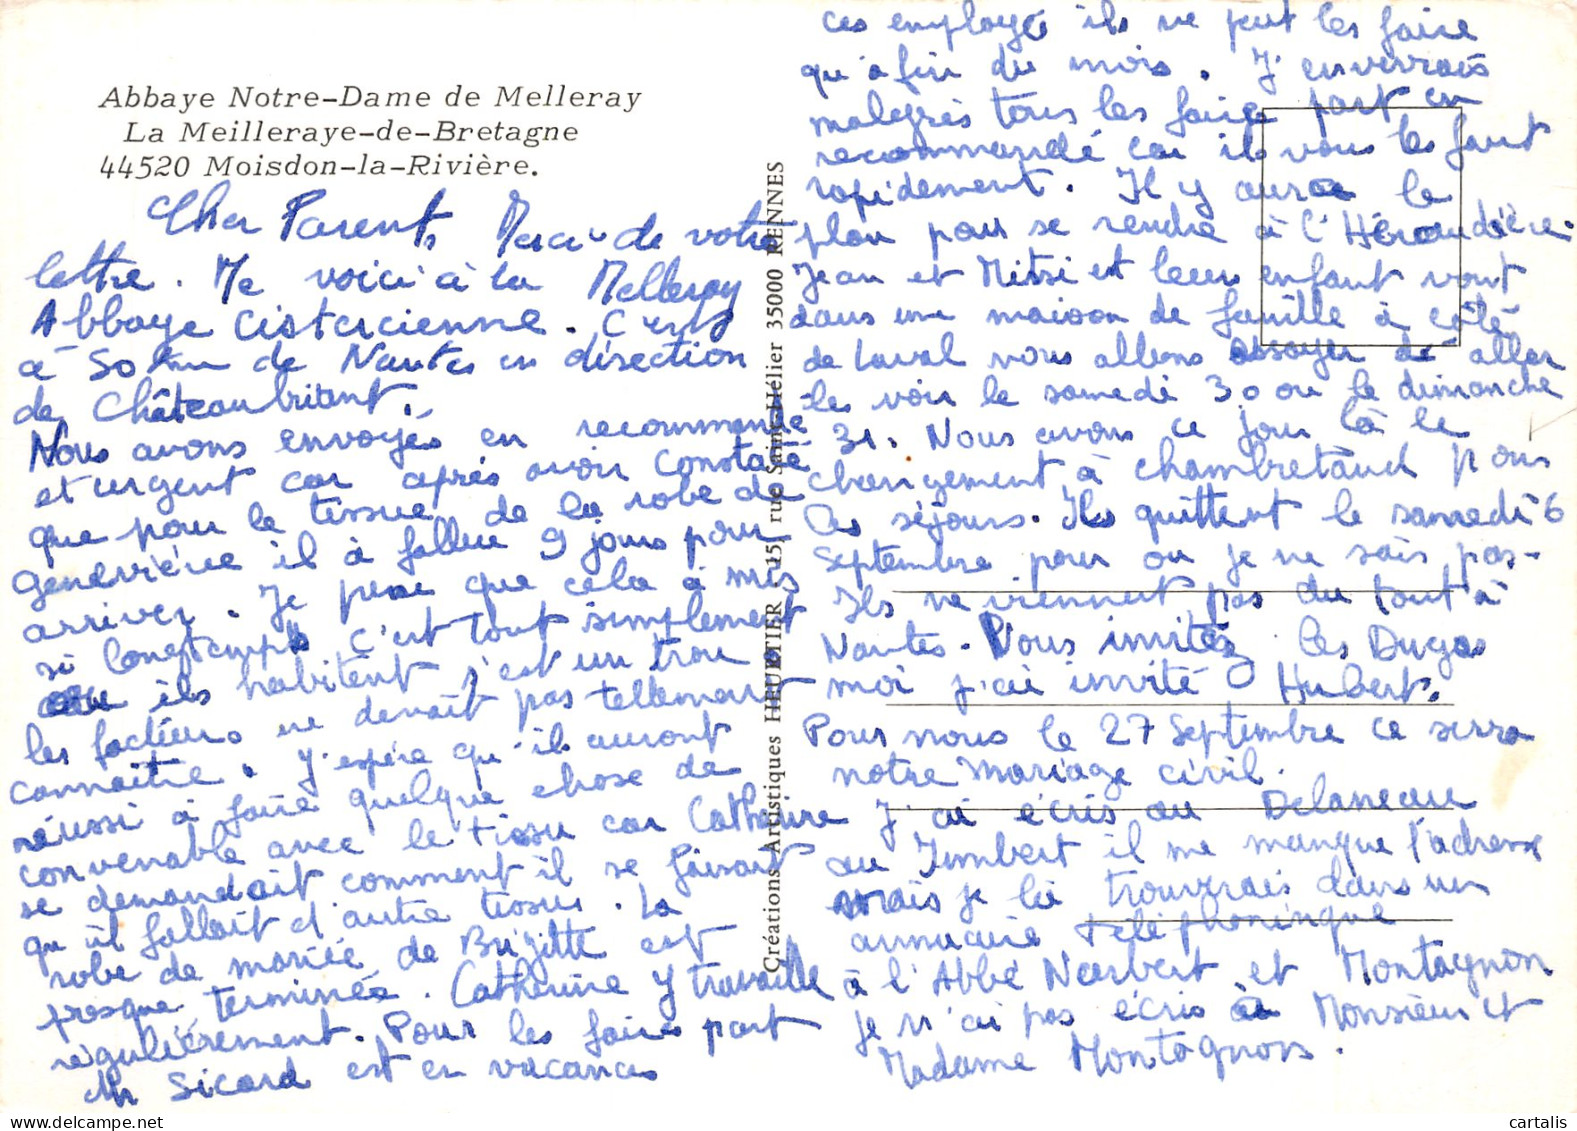 Abbaye Notre-Dame de Melleray
La Meilleraye-de-Bretagne
44520 Moisdon-la-Rivière.
Cher Parents Merci de votre
lettre. Me voici à la Melleray
Abbaye cistercienne. C'est
à 50 km de Nantes en direction
de Châteaubriant.
Nous avons envoyés en recommandé
et urgent car après avoir constaté
que pour le tissue de la robe de
Geneviève il à fallue 9 jours pour
arriver. Je pense que cela à mis
si longtemps c'est tout simplement
que ils habitent s'est un trou
les facteurs ne devait pas tellement
connaître. J'espère qu'ils auront
réussi à faire quelque chose de
convenable avec le tissu car Catherine
se demandait comment il se faisait
qu'il fallait d'autre tissus. La
robe de mariée de Brigitte est
presque terminée. Catherine y travaille
régulièrement. Pour les faire part
Mr Sicard est en vacances
Créations Artistiques HEURTIER, 15, rue Saint-Hélier 35000 RENNES
ces employé ils ne peut les faire
qu'a fin du mois. J'enverrais
malgrès tous les faire part en
recommandé car ils vous les faut
rapidement. Il y aura le
plan pour se rendre à l'Héraudière.
Jean et Mitsi et leur enfant vont
dans une maison de famille à côté
de Laval nous allons essayer de aller
les voir le samedi 30 ou le dimanche
31. Nous avons ce jour là le
changement à chambretaud pour
les séjours. Ils quittent le samedi 6
Septembre pour ou je ne sais pas.
Ils ne viennent pas du tout à
Nantes. Vous invitez les Dugas
moi j'ai invité Hubert.
Pour nous le 27 Septembre ce serra
notre mariage civil.
J'ai écris au Delaneau
au Jumbert il me manque l'adresse
mais je la trouverais dans un
annuaire téléphoninque
à l'Abbé Norbert et Montagnon
je n'ai pas écris à Monsieur et
Madame Montagnon.
cartalis.com